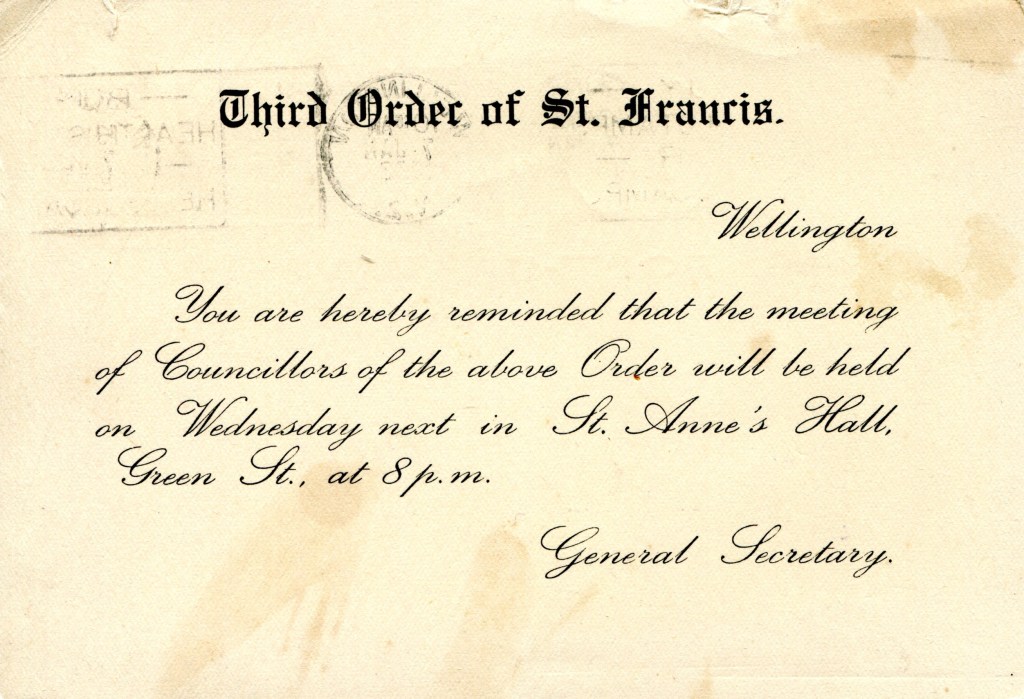 Third Order of St. Francis.
Wellington
You are hereby reminded that the meeting
of Councillors of the above Order will be held
on Wednesday next in St. Anne's Hall,
Green St., at 8 p.m.
General Secretary.